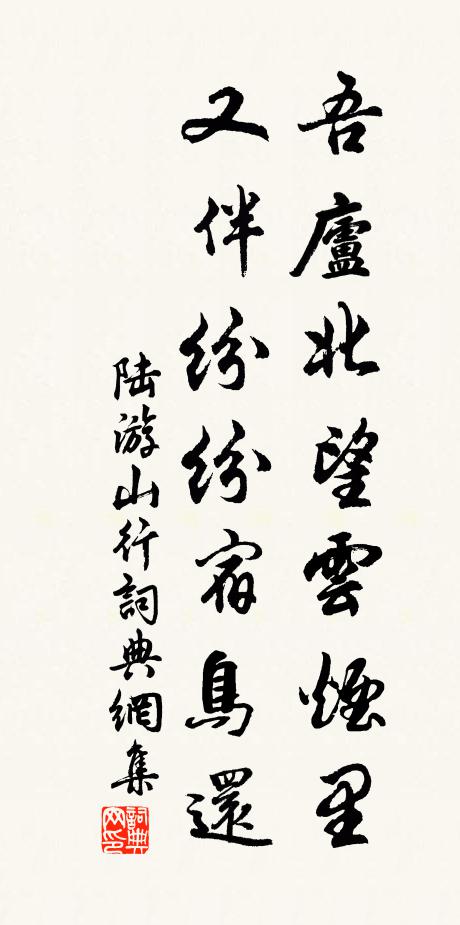 吾廬北望雲煙里
又伴紛紛宿鳥還
陸游山行詞典網集
詞典网印